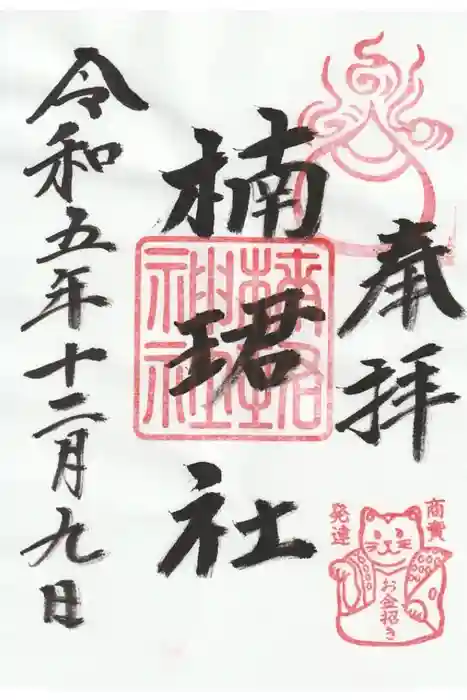 奉拝
商賣
発達
お金招き
楠珺社
令和五年十二月九日